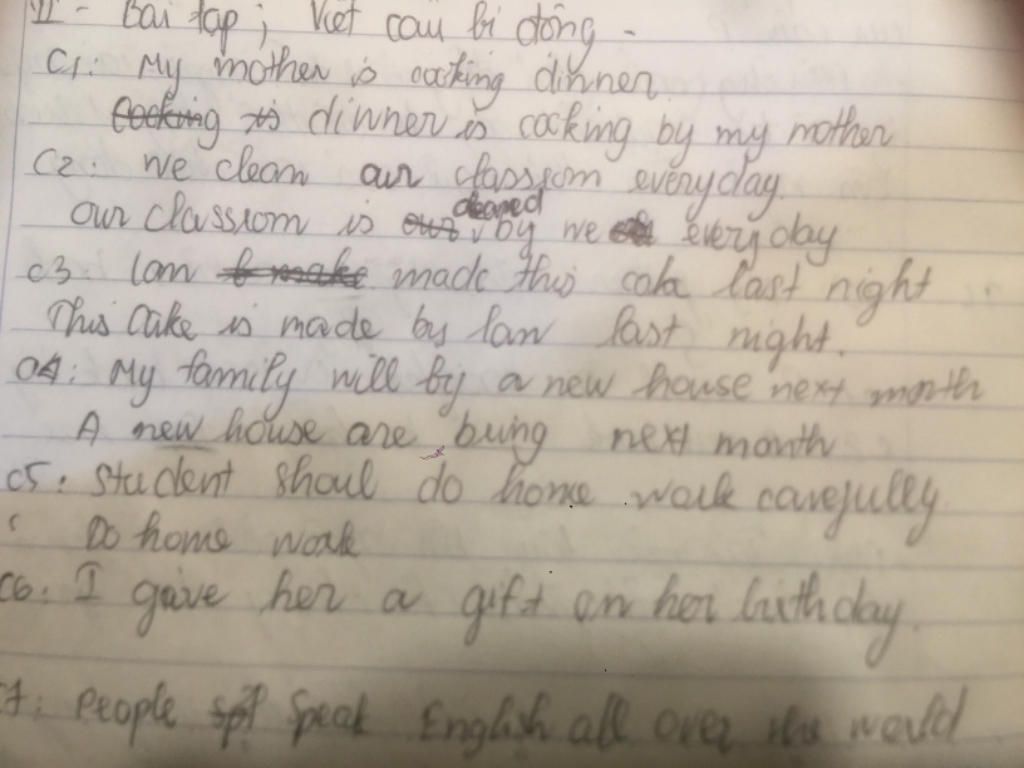 II - Bai tap ; Viết câu bi đông -
C1: My mother is cocking dinner
dinner is cocking by my mother
C2: we clean our classrom everyday
our classrom is cleaned by we every day
C3: lan made this cake last night
This Cake is made by lan last night.
C4: My family will by a new house next month
A new house are bung next month
C5: Student shoul do home work carefully
Do home work
C6: I gave her a gift on her birthday.
C7: People Speak English all over the world